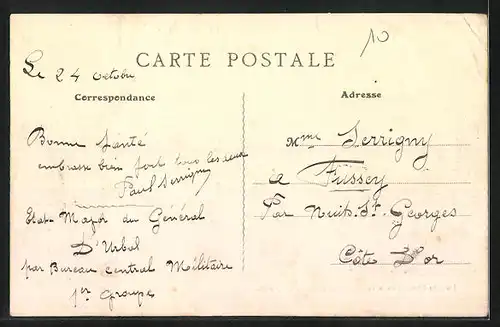 10
CARTE POSTALE
Le 24 octobre
Correspondance
Adresse
Bonne santé
embrasse bien fort tous les deux
Paul Serrigny
Etat-Major du Général
D'Urbal
par Bureau Central Militaire
1er Groupe
Mme Serrigny
a Fussey
Par Nuits-St-Georges
Côte d'Or